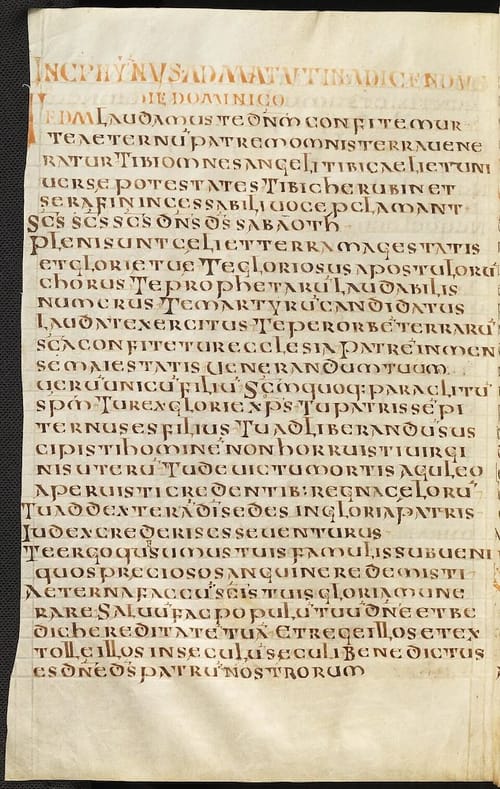 INC PHYNVS AD MATVTIN ADICENDVS
DIE DOMINICO
TEDM Laudamus te dnm confitemur
te aeternu patrem omnis terra uene
ratur Tibi omnes angeli tibi caeli et uni
uerse potestates Tibi cherubin et
serafin incessabili uoce pclamant
Scs scs scs dns ds sabaoth
Pleni sunt celi et terra magestatis
et glorie tue Te gloriosus apostuloru
chorus Te prophetaru laudabilis
numerus Te martyru candidatus
laudat exercitus Te per orbe terraru
sca confitetur ecclesia patre inmen
se maiestatis uenerandum tuum
ueru unicu filiu Scm quoq: paraclitu
spm Tu rex glorie xps Tu patris sepi
ternus es filius Tu ad liberandu sus
cipisti homine non horruisti uirgi
nis uteru Tu deuictu mortis aculeo
aperuisti credentib: regna celoru
Tu ad dextera di sedes in gloria patris
Iudex crederis esse uenturus
Te ergo qs sumus tuis famulis subueni
quos precioso sanguine redemisti
Aeterna fac cu scis tuis gloria mune
rare Saluu fac populu tuu dne et be
dic hereditate tua Et rege illos et ex
tolle illos in seculu seculi Benedictus
es dne ds patru nostrorum